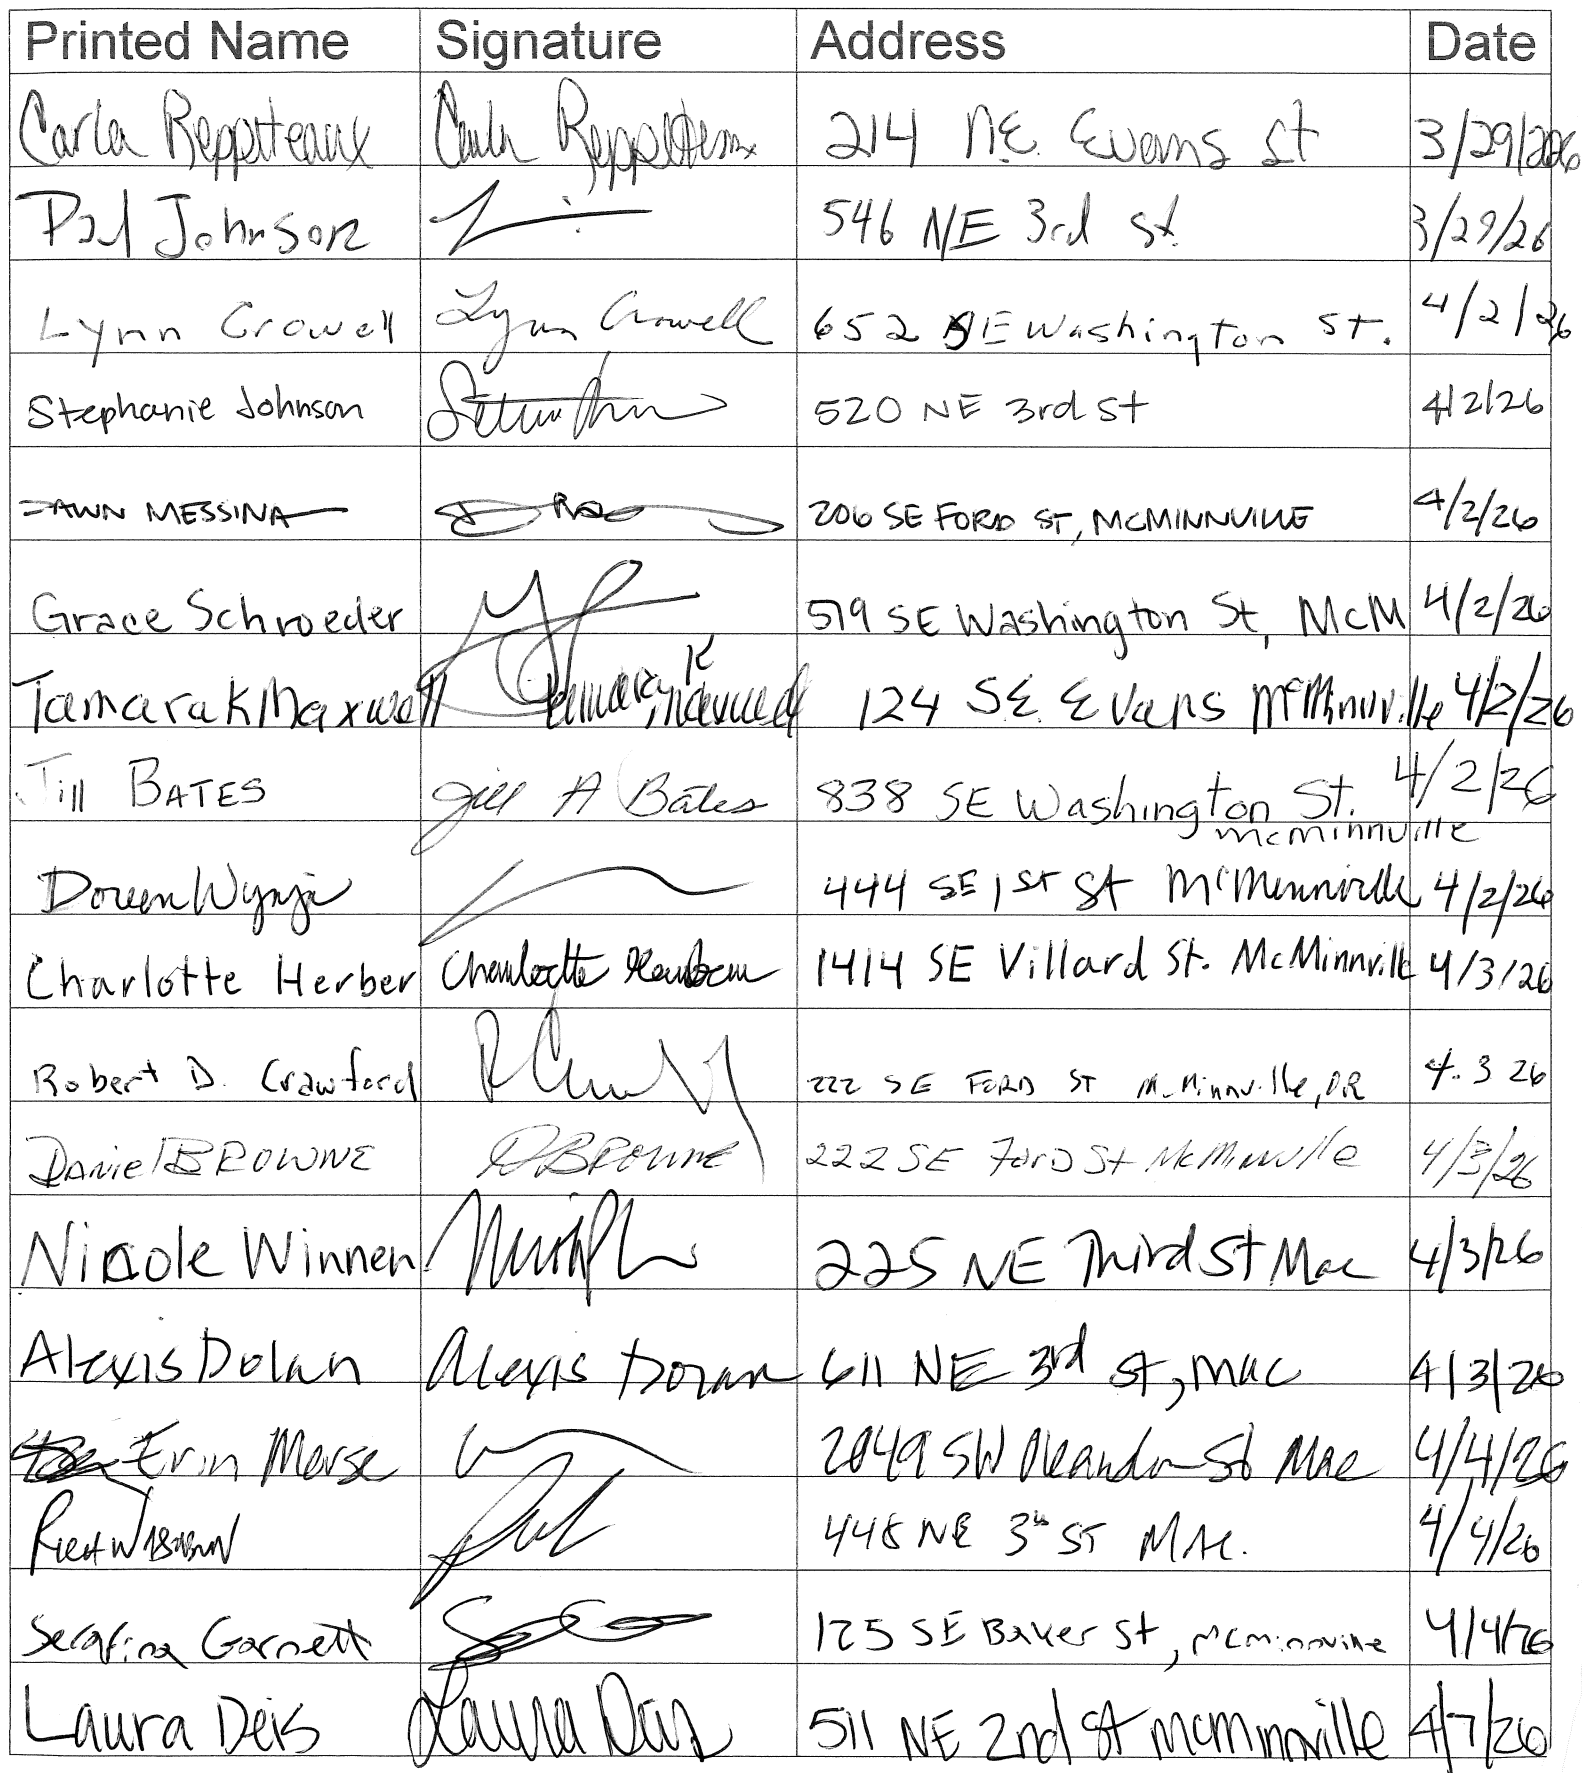 Printed Name Signature Address Date
Carla Reppeteaux Carla Reppeteaux 214 N.E. Evans St 3/29/2026
Paul Johnson 546 NE 3rd St. 3/29/26
Lynn Crowell Lynn Crowell 652 NE Washington St. 4/2/26
Stephanie Johnson 520 NE 3rd St 4/2/26
DAWN MESSINA 206 SE FORD ST, MCMINNVILLE 4/2/26
Grace Schroeder 519 SE Washington St, McM 4/2/26
Tamara K Maxwell Tamara K Maxwell 124 S.E. Evans McMinnville 4/2/26
Jill BATES Jill A Bates 838 SE Washington St. 4/2/26
mcminnville
Doreen Wynja 444 SE 1ST St McMinnville 4/2/26
Charlotte Herber Charlotte 1414 SE Villard St. McMinnville 4/3/26
Robert D. Crawford 222 SE FORD ST McMinnville, OR 4.3 26
Daniel BROWNE DBROWNE 222 SE FORD St McMinnville 4/3/26
Nicole Winnen 225 NE Third St Mac 4/3/26
Alexis Dolan Alexis Doran 611 NE 3rd St, Mac 4/3/26
Erin Morse 2049 SW St Mac 4/4/26
448 NE 3rd ST MAC. 4/4/26
Serafina Garnett 125 SE Baker St, McMinnville 4/4/26
Laura Deis Laura Deis 511 NE 2nd St McMinnville 4/7/26